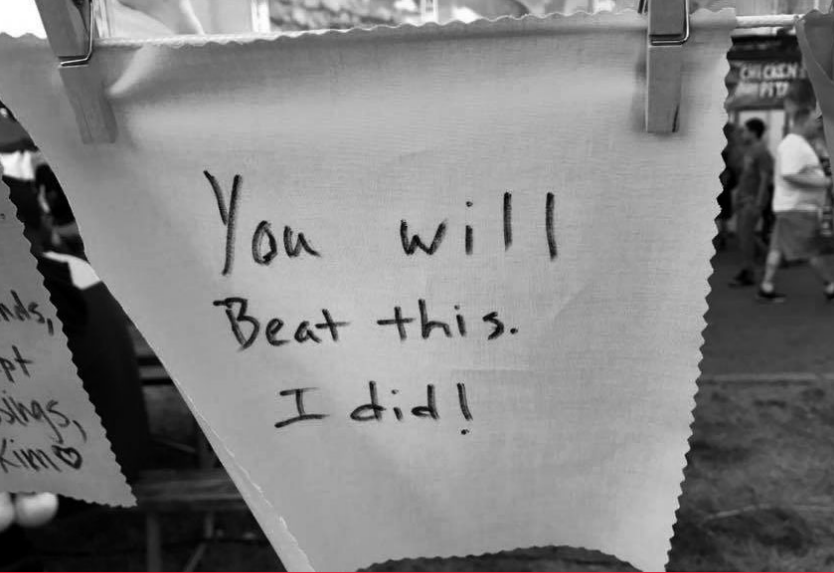 You will
Beat this.
I did!
nds,
pt
sings,
Kim♡
CHICKEN
PITA